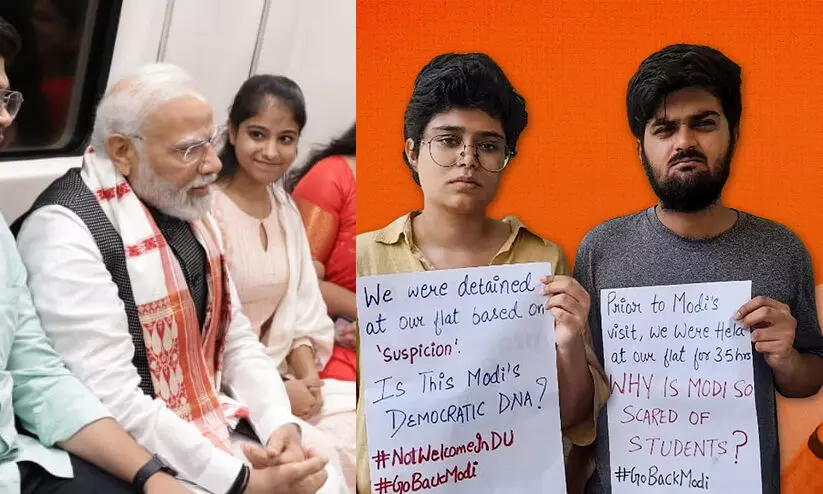 We were detained
at our flat based on
'suspicion'.
Is This Modi's
DEMOCRATIC DNA?
#NotWelcomeInDU
#GoBackModi
Prior to Modi's
visit, we were Held
at our flat for 35hrs
WHY IS MODI SO
SCARED OF
STUDENTS?
#GoBackModi